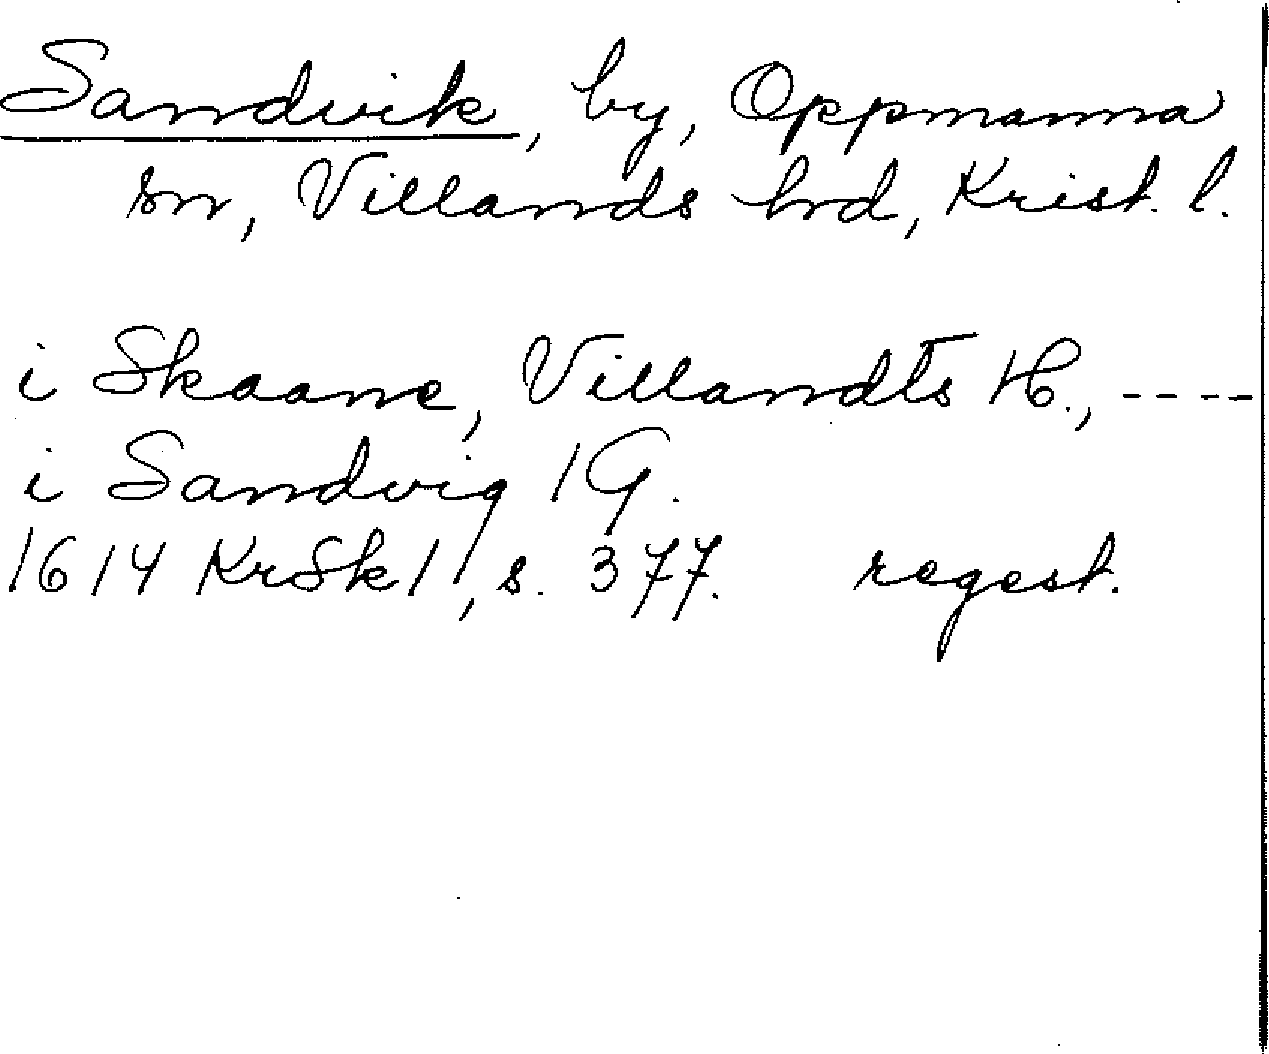 Sandvik, by, Oppmanna
sn, Villands hd, Krist. l.
i Skaane, Villandts H., ----
i Sandvig 1 G.
1614 KrSk 1, s. 377. regest.